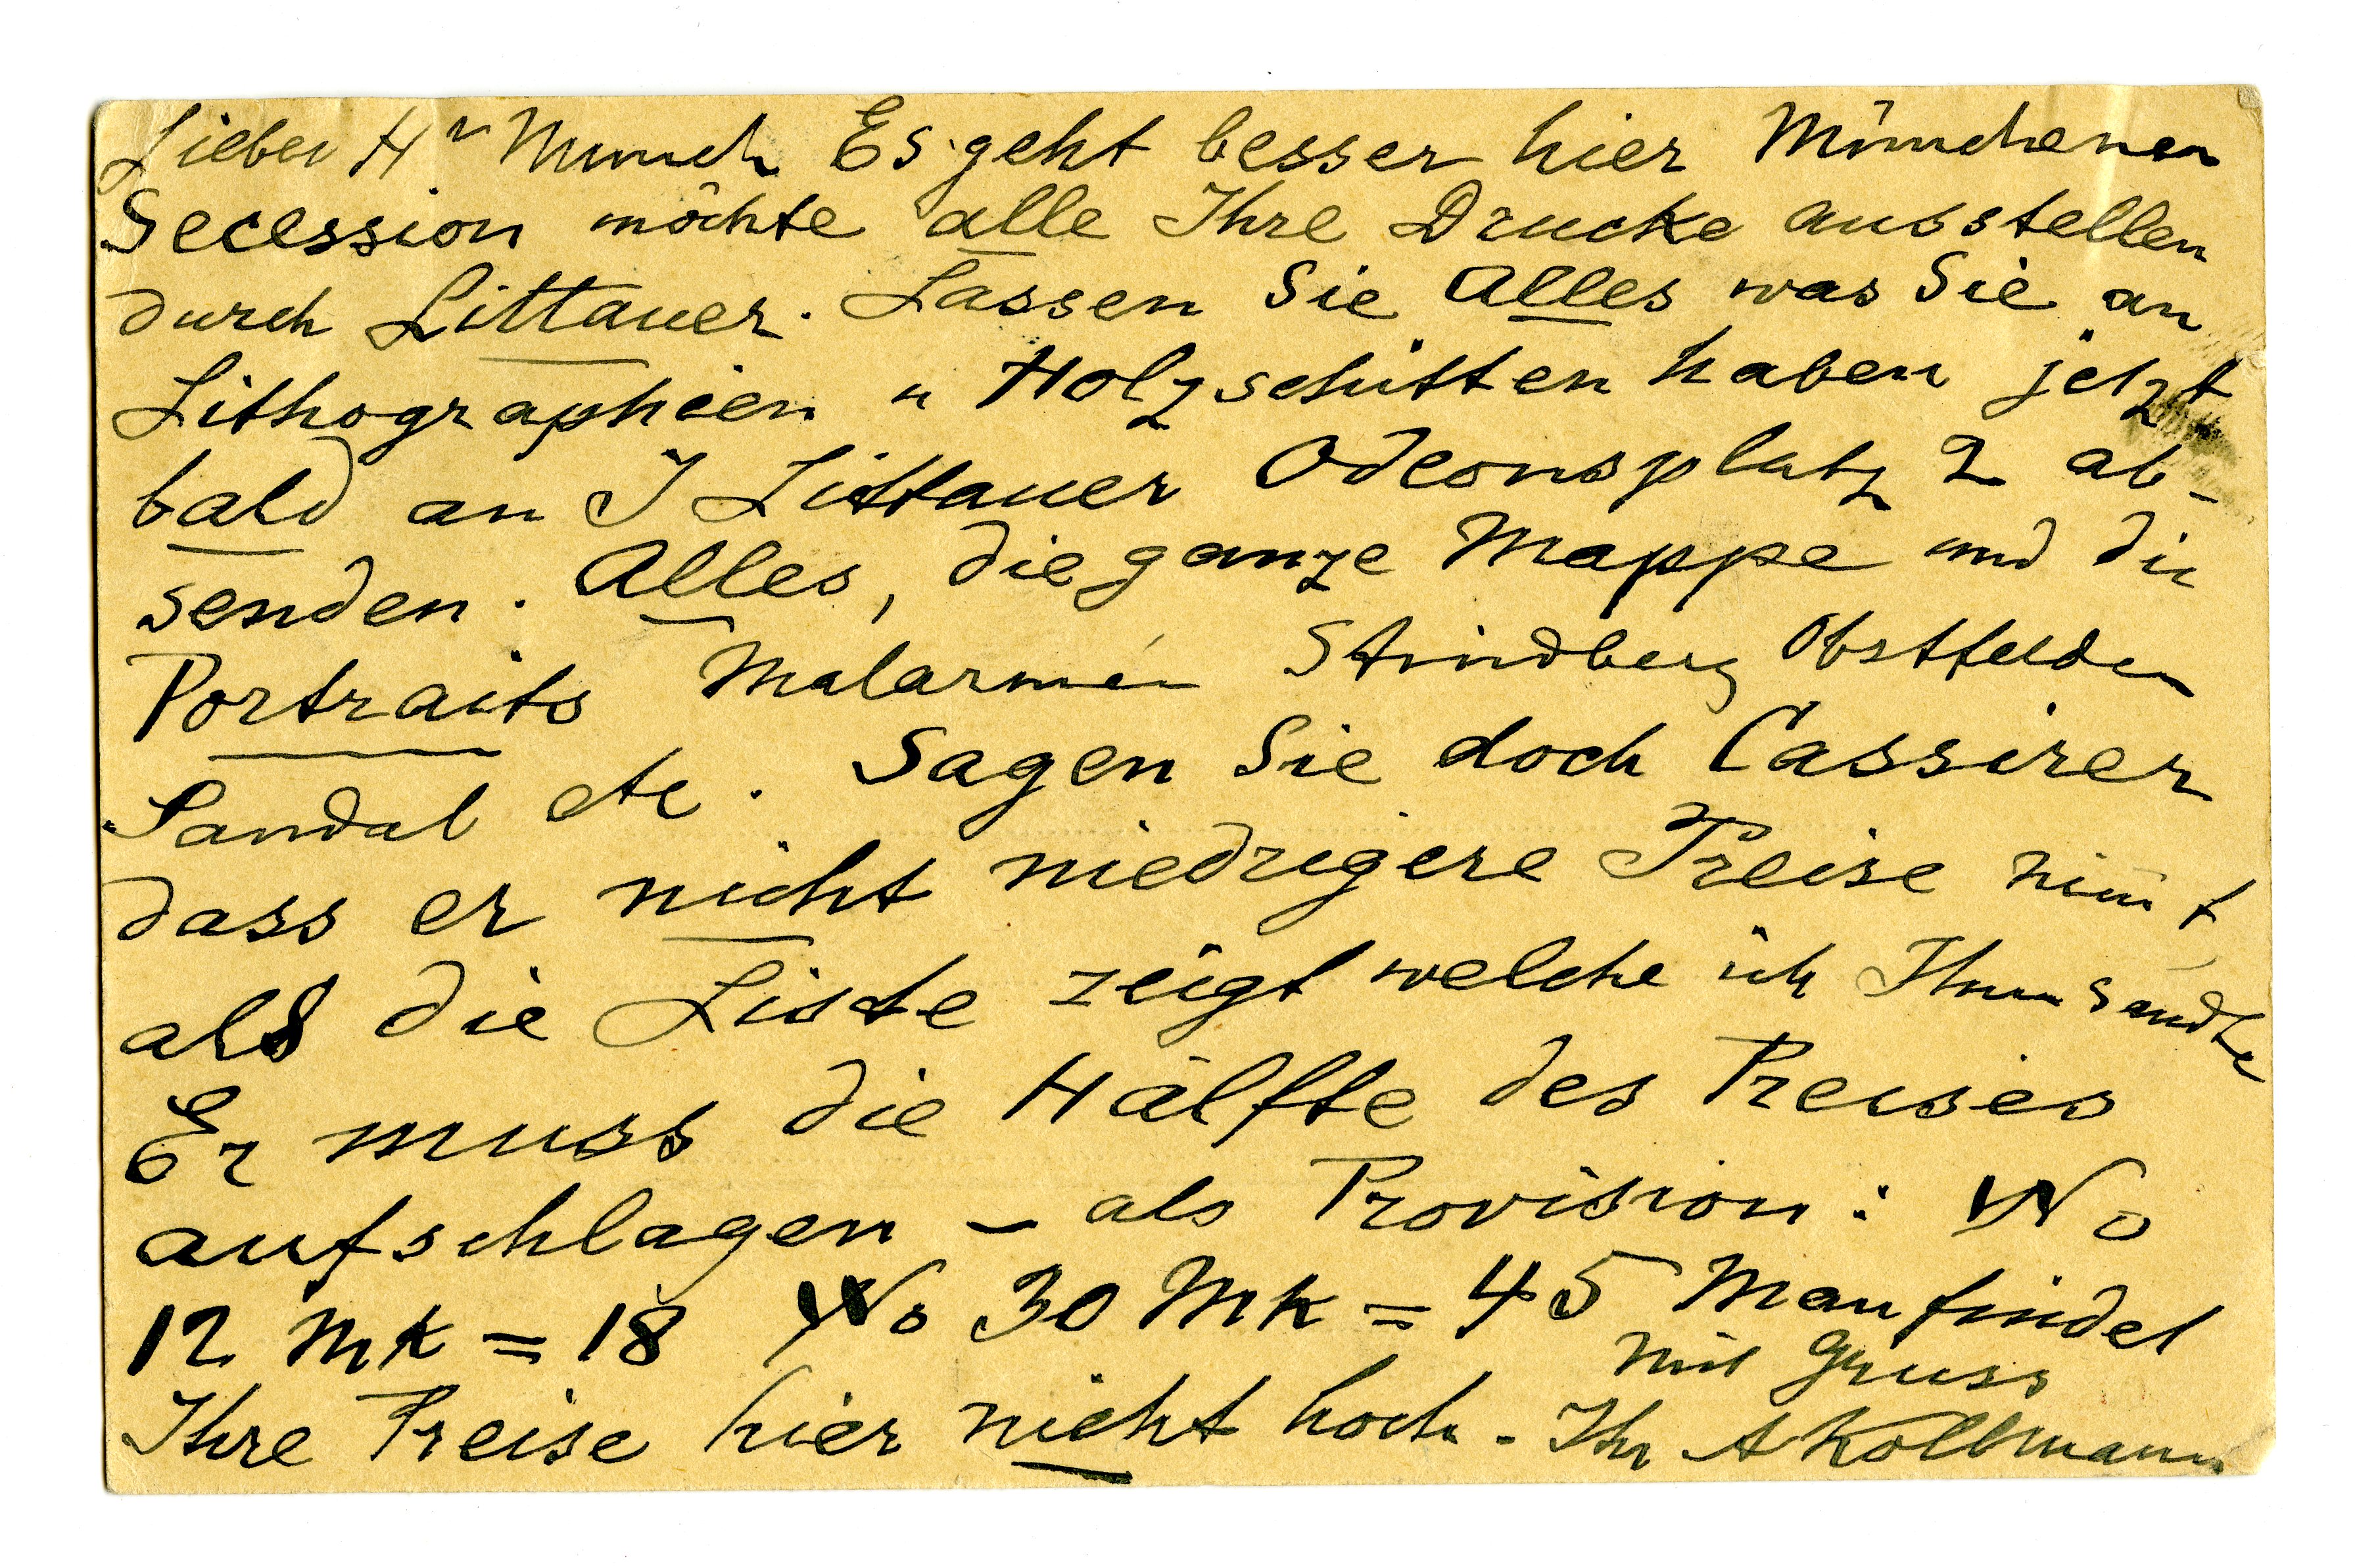 Lieber Hr Munch Es geht besser hier Münchener
Secession möchte alle Ihre Drucke ausstellen
durch Littauer. Lassen Sie Alles was Sie an
Lithographien u Holzschitten haben jetzt
bald an J Littauer Odeonsplatz 2 ab-
senden. Alles, die ganze Mappe und die
Portraits Malarmée Strindberg Obstfelder
Sandal etc. Sagen Sie doch Cassirer
dass er nicht niedrigere Preise nim̄t
als die Liste zeigt welche ich Ihnen sandte
Er muss die Hälfte des Preises
aufschlagen – als Provision: Wo
12 Mk = 18 Wo 30 Mk = 45 Man findet
mit Gruss
Ihre Preise hier nicht hoch. Ihr A Kollmann